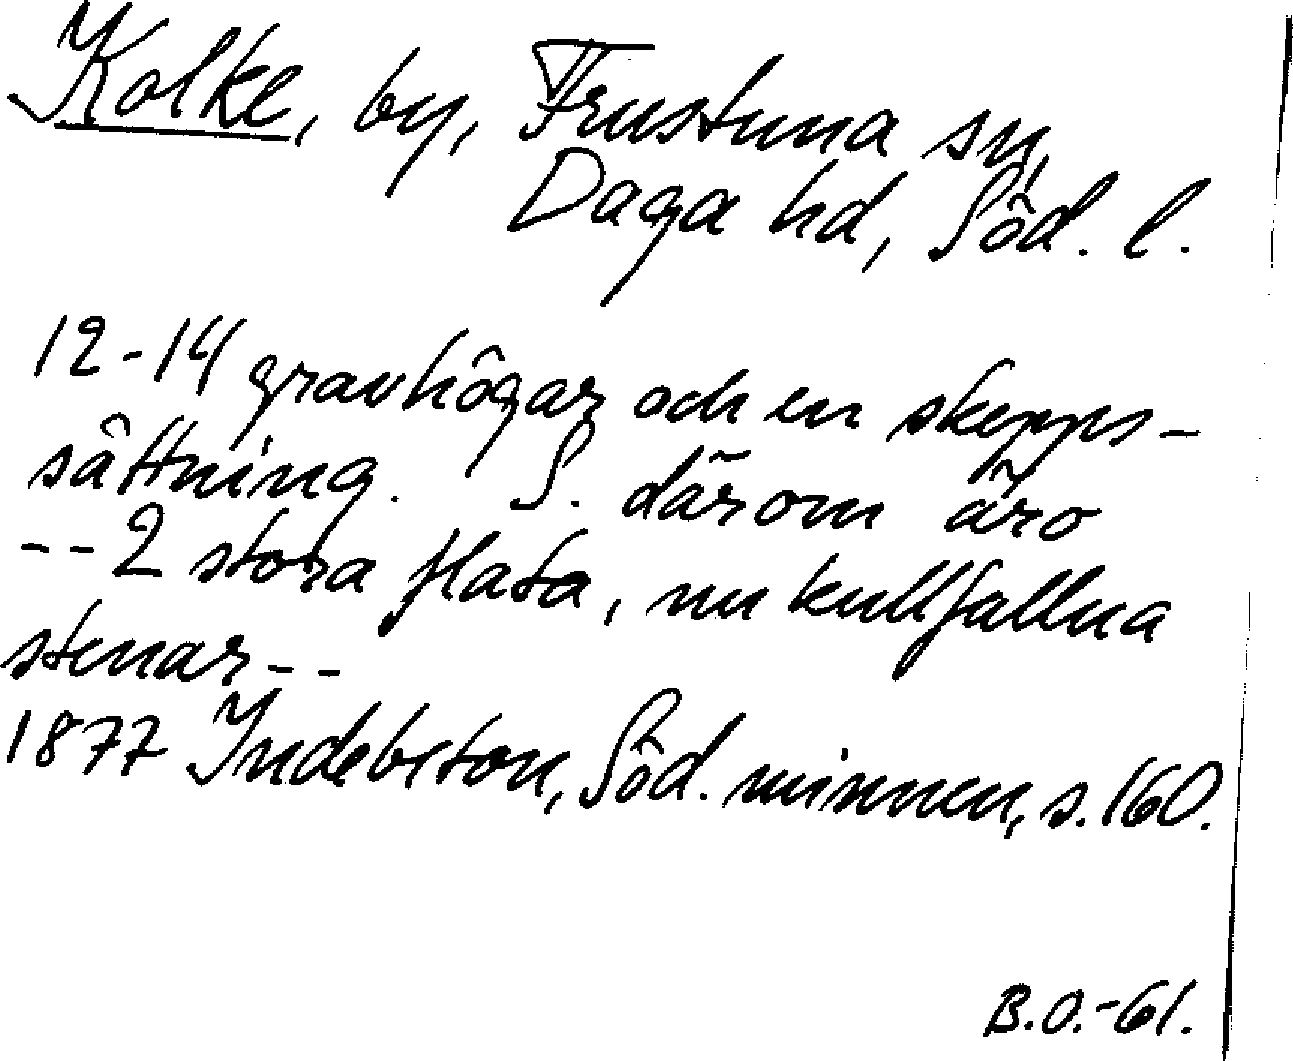 Kolke, by, Frustuna sn,
Daga hd, Söd. l.
12-14 gravhögar och en skepps-
sättning. S. därom äro
-- 2 stora flata, nu kullfallna
stenar --
1877 Indebetou, Söd. minnen, s. 160.
B.O.-61.